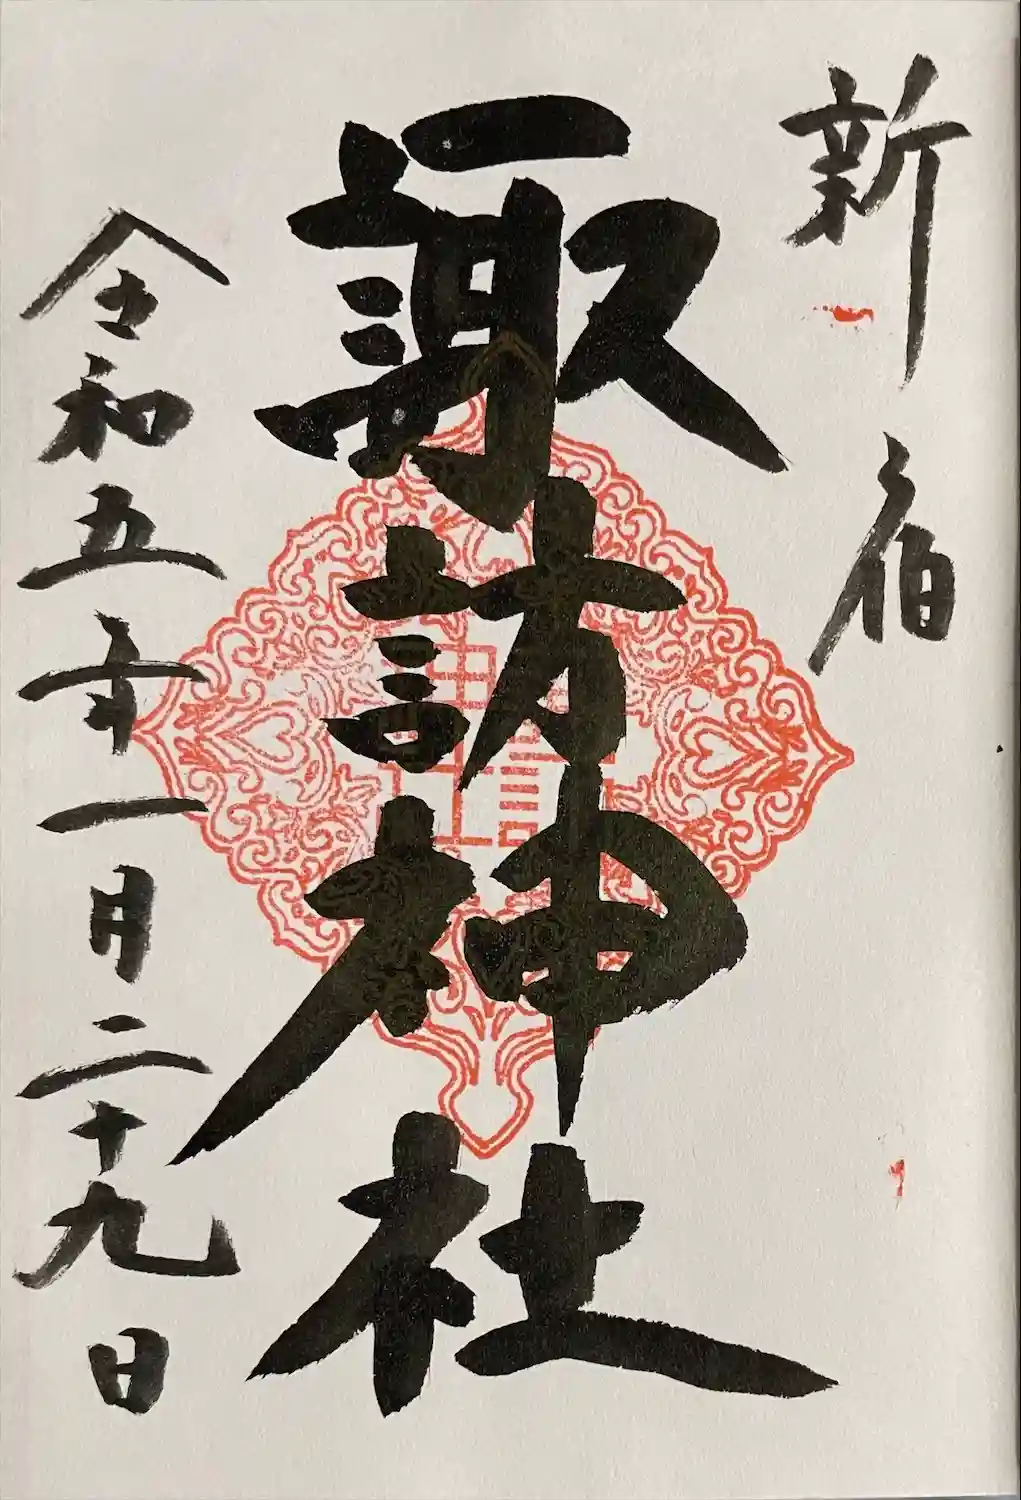 新宿
諏訪神社
令和五年一月二十九日